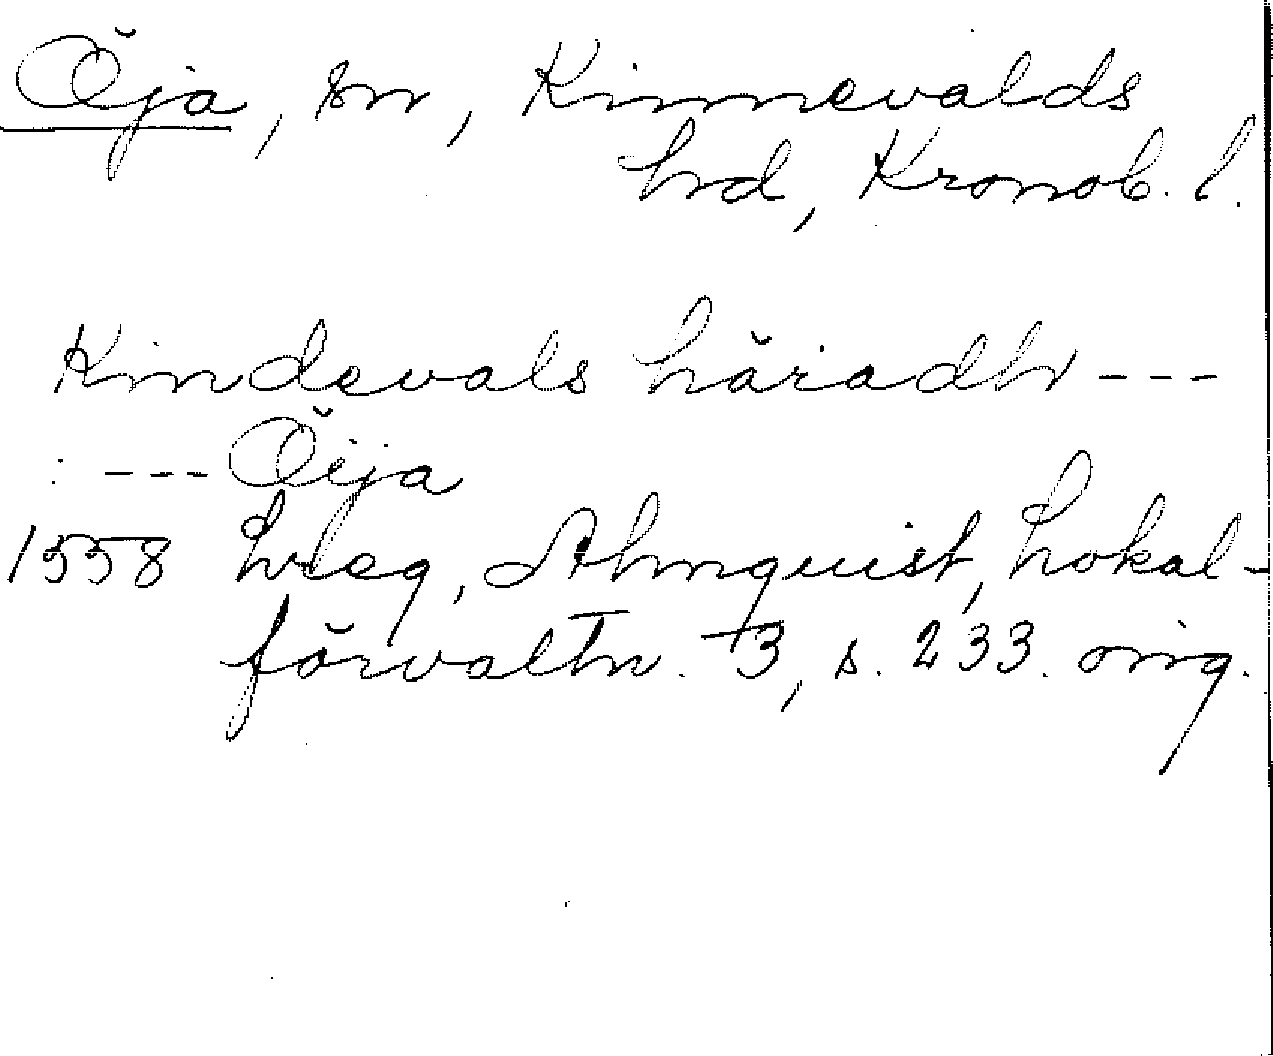 Öja, sn, Kinnevalds
hd, Kronob. l.
Kindevals häradh ---
: --- Öija
1558 hdleg, Almquist, Lokal-
förvaltn. 3, s. 233. orig.